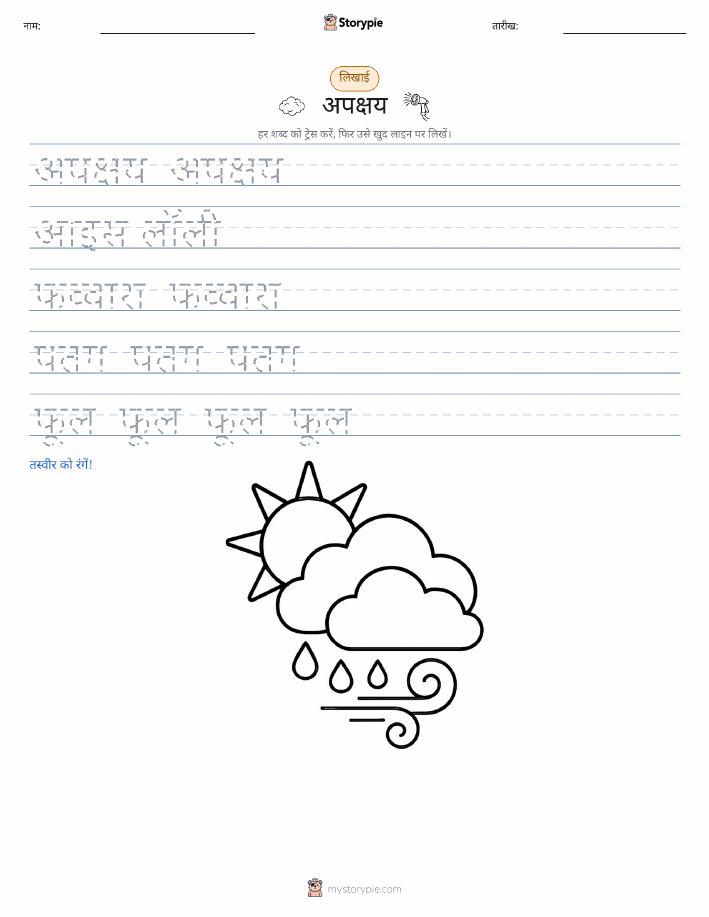 नाम:
Storypie
तारीख:
लिखाई
अपक्षय
हर शब्द को ट्रेस करें, फिर उसे खुद लाइन पर लिखें।
अपक्षय अपक्षय
आइस लॉली
फव्वारा फव्वारा
पतंग पतंग पतंग
फूल फूल फूल फूल
तस्वीर को रंगें!
mystorypie.com